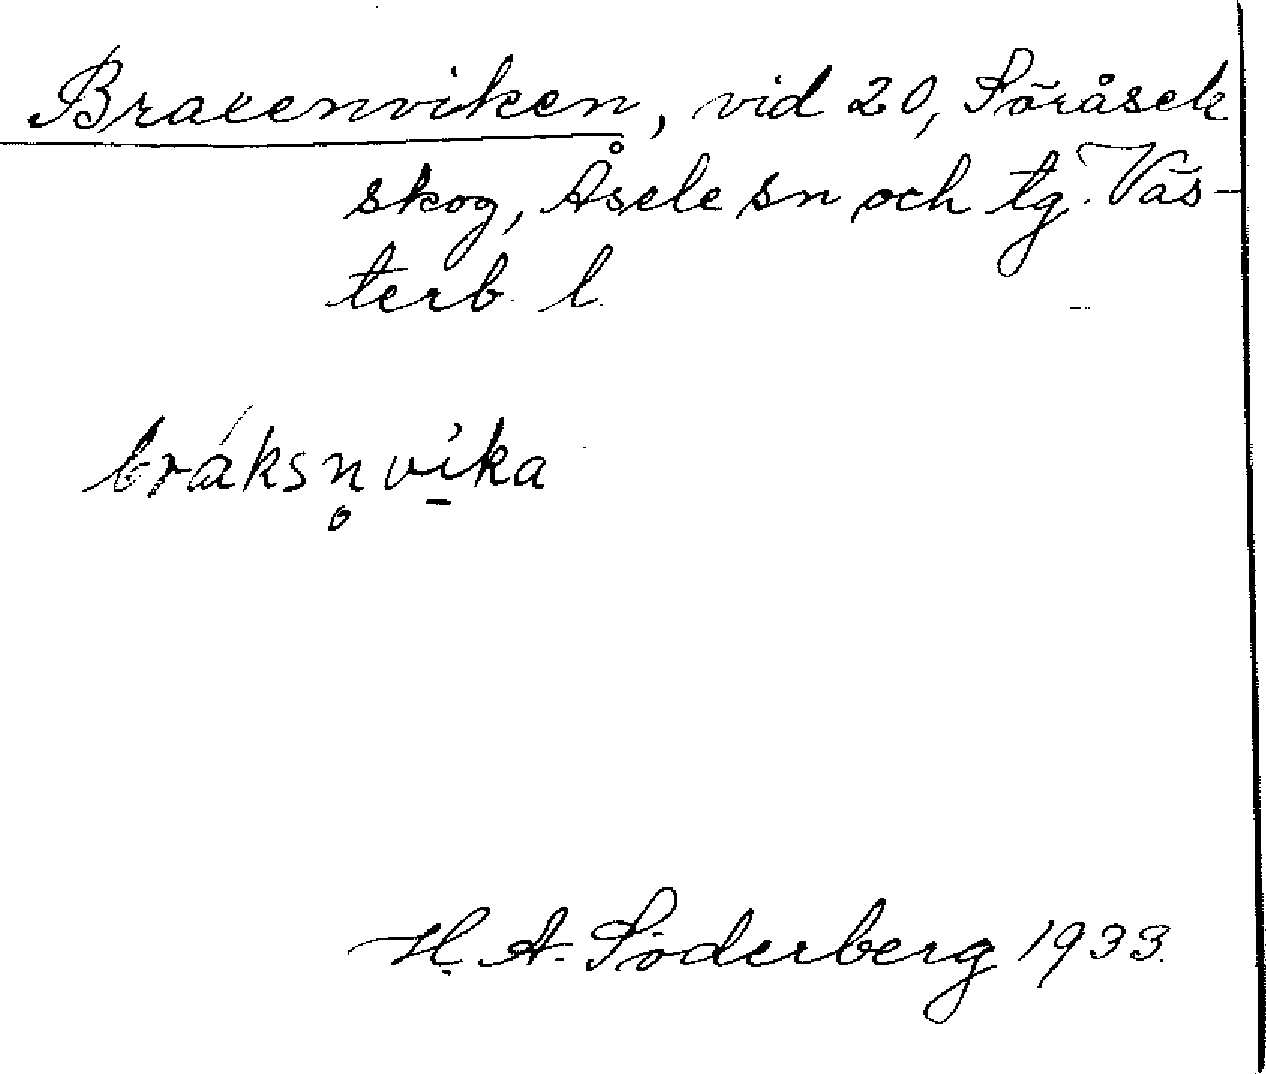 Braxenviken, vid 20, Söråsele
skog, Åsele sn och tg. Väs-
terb. l.
bráksn̥ vi̱ka
H. A. Söderberg 1933.